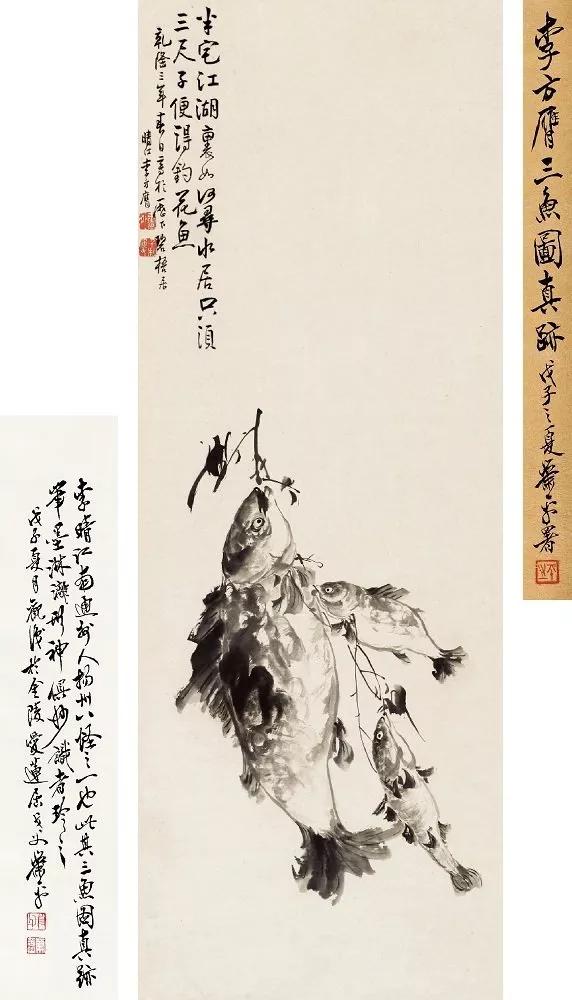 李方膺三魚圖真跡
戊子之夏蕭平署
半宅江湖裏如何尋水居只須
三尺子便得釣花魚
乾隆三年春日寫於歷下碧梧居
晴江李方膺
李晴江南通州人揚州八怪之一也此其三魚圖真跡
筆墨淋漓形神俱妙識者珍之
戊子夏月觀後於金陵愛蓮居蕭平